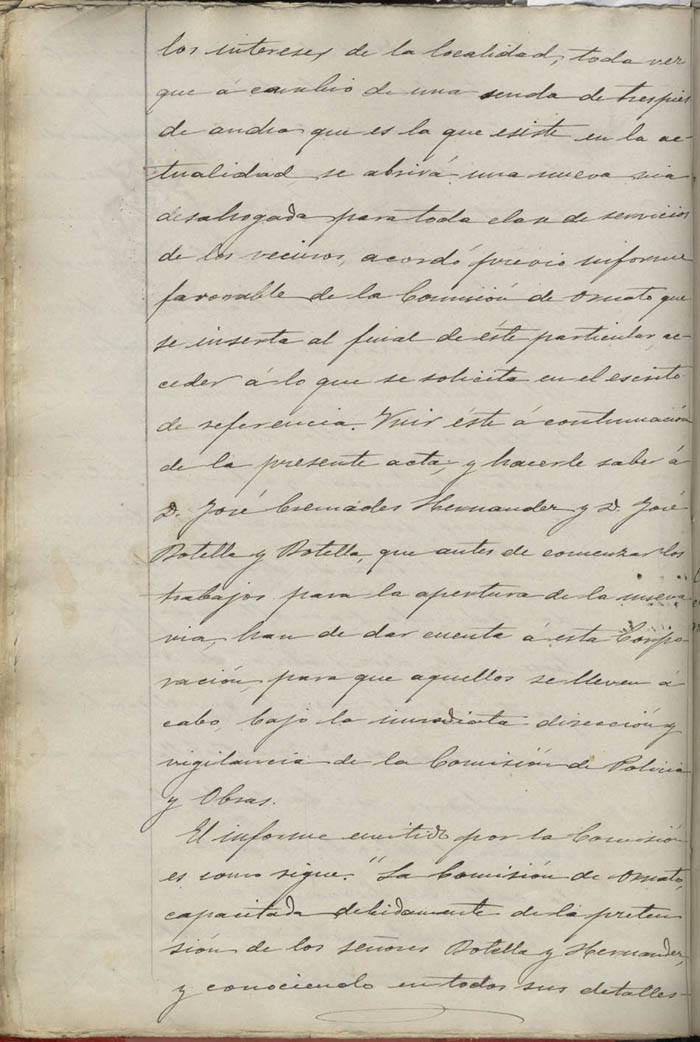 los intereses de la localidad, toda vez
que á cambio de una senda de tres piés
de ancha que es la que esiste en la ac-
tualidad se abrirá una nueva via
desahogada para toda clase de servicios
de los vecinos, acordó previo informe
favorable de la Comisión de Ornato que
se inserta al final de éste particular, ac-
ceder á lo que se solicita en el escrito
de referencia. Unir éste á continuación
de la presente acta, y hacerle saber á
D. José Cremades Hernandez y D. José
Botella y Botella, que antes de comenzar los
trabajos para la apertura de la nueva
via, han de dar cuenta á esta Corpo-
ración, para que aquellos se lleven á
cabo, bajo la inmediata dirección y
vigilancia de la Comisión de Policia
y Obras.
El informe emitido por la Comisión
es como sigue. "La Comisión de Ornato,
capacitada debidamente de la preten
sión de los señores Botella y Hernandez,
y conociendo en todos sus detalles